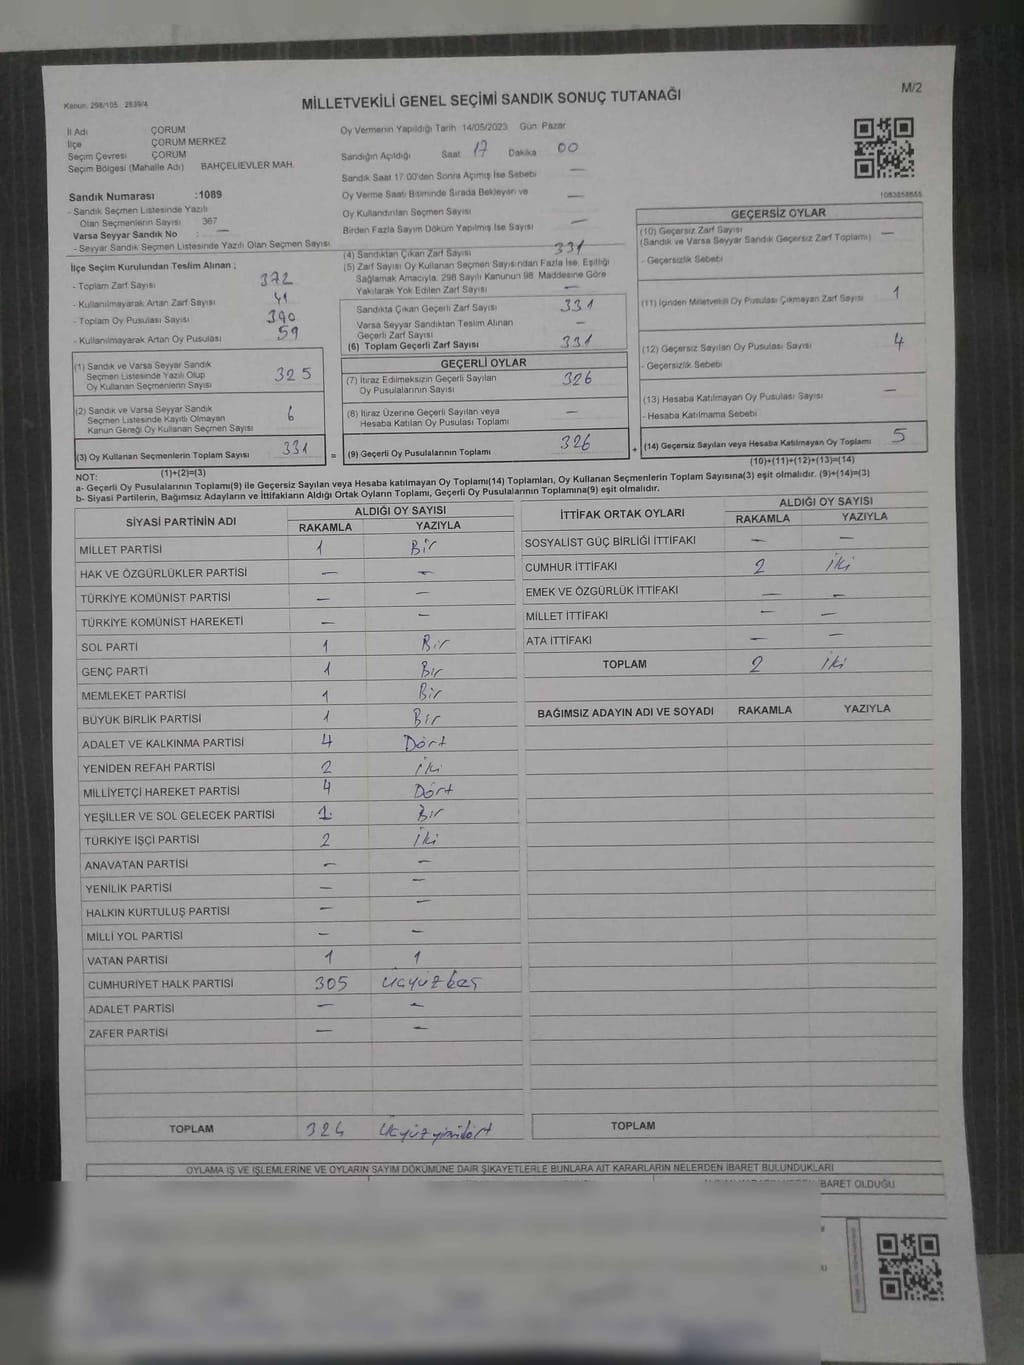 Kanun: 298/105 2839/4
M/2
MİLLETVEKİLİ GENEL SEÇİMİ SANDIK SONUÇ TUTANAĞI
İl Adı ÇORUM
İlçe ÇORUM MERKEZ
Seçim Çevresi ÇORUM
Seçim Bölgesi (Mahalle Adı) BAHÇELİEVLER MAH.
Sandık Numarası :1089
- Sandık Seçmen Listesinde Yazılı
Olan Seçmenlerin Sayısı 367
Varsa Seyyar Sandık No : —
- Seyyar Sandık Seçmen Listesinde Yazılı Olan Seçmen Sayısı
Oy Vermenin Yapıldığı Tarih 14/05/2023 Gün Pazar
Sandığın Açıldığı Saat 17 Dakika 00
Sandık Saat 17:00'den Sonra Açımış İse Sebebi —
Oy Verme Saati Bitiminde Sırada Bekleyen ve
Oy Kullandırılan Seçmen Sayısı —
Birden Fazla Sayım Döküm Yapılmış İse Sayısı —
1083858655
İlçe Seçim Kurulundan Teslim Alınan ;
- Toplam Zarf Sayısı 372
- Kullanılmayarak Artan Zarf Sayısı 41
- Toplam Oy Pusulası Sayısı 390
- Kullanılmayarak Artan Oy Pusulası 59
(1) Sandık ve Varsa Seyyar Sandık
Seçmen Listesinde Yazılı Olup
Oy Kullanan Seçmenlerin Sayısı 325
(2) Sandık ve Varsa Seyyar Sandık
Seçmen Listesinde Kayıtlı Olmayan
Kanun Gereği Oy Kullanan Seçmen Sayısı 6
(3) Oy Kullanan Seçmenlerin Toplam Sayısı 331
(1)+(2)=(3)
(4) Sandıktan Çıkan Zarf Sayısı 331
(5) Zarf Sayısı Oy Kullanan Seçmen Sayısından Fazla İse, Eşitliği
Sağlamak Amacıyla, 298 Sayılı Kanunun 98. Maddesine Göre
Yakılarak Yok Edilen Zarf Sayısı —
Sandıkta Çıkan Geçerli Zarf Sayısı 331
Varsa Seyyar Sandıktan Teslim Alınan
Geçerli Zarf Sayısı —
(6) Toplam Geçerli Zarf Sayısı 331
GEÇERLİ OYLAR
(7) İtiraz Edilmeksizin Geçerli Sayılan
Oy Pusulalarının Sayısı 326
(8) İtiraz Üzerine Geçerli Sayılan veya
Hesaba Katılan Oy Pusulası Toplamı —
= (9) Geçerli Oy Pusulalarının Toplamı 326 +
GEÇERSİZ OYLAR
(10) Geçersiz Zarf Sayısı
(Sandık ve Varsa Seyyar Sandık Geçersiz Zarf Toplamı) —
- Geçersizlik Sebebi
(11) İçinden Milletvekili Oy Pusulası Çıkmayan Zarf Sayısı 1
(12) Geçersiz Sayılan Oy Pusulası Sayısı 4
- Geçersizlik Sebebi
(13) Hesaba Katılmayan Oy Pusulası Sayısı —
- Hesaba Katılmama Sebebi
(14) Geçersiz Sayılan veya Hesaba Katılmayan Oy Toplamı 5
(10)+(11)+(12)+(13)=(14)
NOT:
a- Geçerli Oy Pusulalarının Toplamı(9) ile Geçersiz Sayılan veya Hesaba katılmayan Oy Toplamı(14) Toplamları, Oy Kullanan Seçmenlerin Toplam Sayısına(3) eşit olmalıdır. (9)+(14)=(3)
b- Siyasi Partilerin, Bağımsız Adayların ve İttifakların Aldığı Ortak Oyların Toplamı, Geçerli Oy Pusulalarının Toplamına(9) eşit olmalıdır.
SİYASİ PARTİNİN ADI ALDIĞI OY SAYISI
RAKAMLA YAZIYLA
MİLLET PARTİSİ 1 Bir
HAK VE ÖZGÜRLÜKLER PARTİSİ — —
TÜRKİYE KOMÜNİST PARTİSİ — —
TÜRKİYE KOMÜNİST HAREKETİ — —
SOL PARTİ 1 Bir
GENÇ PARTİ 1 Bir
MEMLEKET PARTİSİ 1 Bir
BÜYÜK BİRLİK PARTİSİ 1 Bir
ADALET VE KALKINMA PARTİSİ 4 Dört
YENİDEN REFAH PARTİSİ 2 İki
MİLLİYETÇİ HAREKET PARTİSİ 4 Dört
YEŞİLLER VE SOL GELECEK PARTİSİ 1 Bir
TÜRKİYE İŞÇİ PARTİSİ 2 İki
ANAVATAN PARTİSİ — —
YENİLİK PARTİSİ — —
HALKIN KURTULUŞ PARTİSİ — —
MİLLİ YOL PARTİSİ — —
VATAN PARTİSİ 1 1
CUMHURİYET HALK PARTİSİ 305 Üçyüzbeş
ADALET PARTİSİ — —
ZAFER PARTİSİ — —
TOPLAM 324 Üçyüzyirmidört
İTTİFAK ORTAK OYLARI ALDIĞI OY SAYISI
RAKAMLA YAZIYLA
SOSYALİST GÜÇ BİRLİĞİ İTTİFAKI — —
CUMHUR İTTİFAKI 2 İki
EMEK VE ÖZGÜRLÜK İTTİFAKI — —
MİLLET İTTİFAKI — —
ATA İTTİFAKI — —
TOPLAM 2 İki
BAĞIMSIZ ADAYIN ADI VE SOYADI RAKAMLA YAZIYLA
TOPLAM
OYLAMA İŞ VE İŞLEMLERİNE VE OYLARIN SAYIM DÖKÜMÜNE DAİR ŞİKAYETLERLE BUNLARA AİT KARARLARIN NELERDEN İBARET BULUNDUKLARI
İBARET OLDUĞU